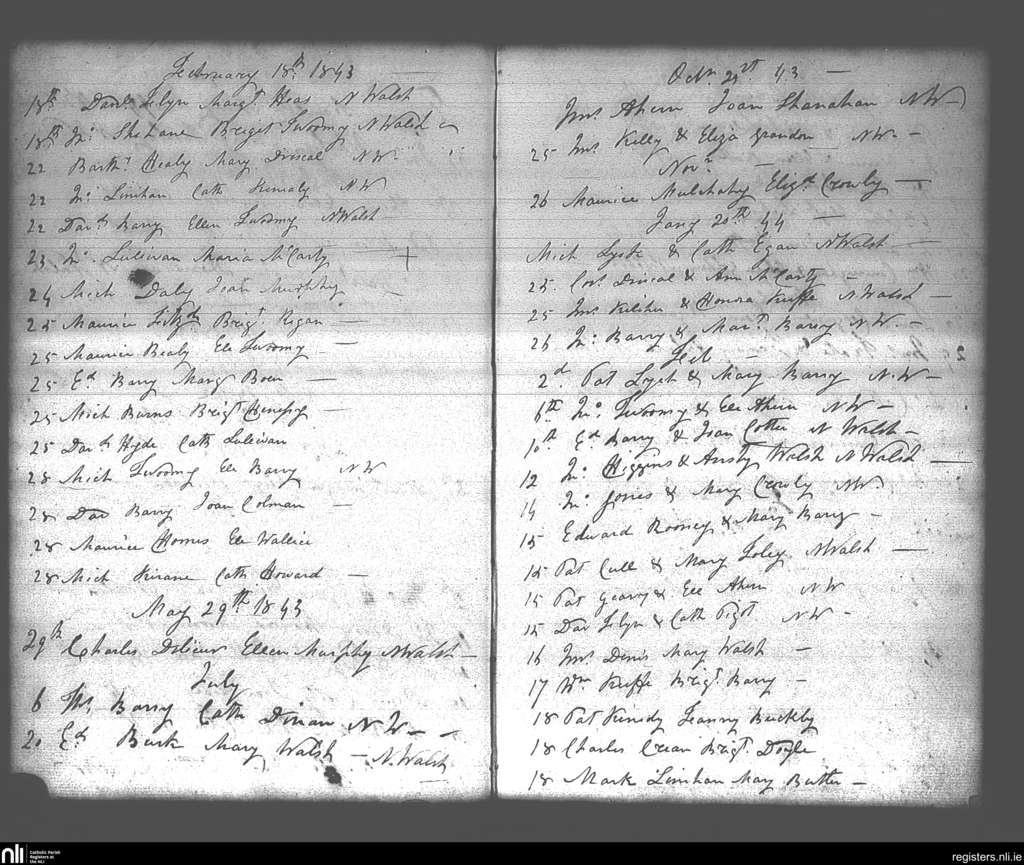 February 18th 1843
18th Dav.d Margt. Heas N Walsh
18th Jno. Shehane Briget Twoomy N Walsh
22 Bartw. Healy Mary Driscol N W.
22 Jno. Linihan Cath Kinialy N W
22 Dav.d Barry Ellen Twoomy N Walsh
23 Jno. Sullivan Maria McCarty
24 Mich Daly Joan Murphy
25 Maurice Fitzgd Brigt Regan
25 Maurice Healy Ele Twoomy
25 Ed Barry Marg Boen
25 Mich Barns Brigt Henesy
25 Dav.d Hyde Cath Sullivan
28 Mich Twoomy Ele Barry N W
28 Dav Barry Joan Colman
28 Maurice Ele Wallice
28 Mich Kirane Cath Howard
May 29th 1843
29th Charles Ellen Murphy N Walsh
July
6 Ths. Barry Cath Dinan N W
20 Ed Burk Mary Walsh N. Walsh
Octr. 21st 43
Jms. Ahern Joan Shanahan N W
25 Jms. Kelly & Eliza N W.
Novr.
26 Maurice Mulchahy Elizth. Crowly
Jany 20th 44
Mich & Cath Egan N Walsh
25. Cors. Driscol & Ann McCarty
25 Jms. & Honora Keeffe N. Walsh
26 Jno. Barry & Margt. Barry N. W.
Feb
2d. Pat Lynch & Mary Barry N. W
6th Jno. Twoomy & Ele Ahern N W
10th Ed Barry & Joan Cotter N Walsh
12 Jno. Higgins & Walsh N Walsh
14 Jno. Jones & Mary Crowly N W.
15 Edward Rooney & Mary Barry
15 Pat Cull & Mary Foley N Walsh
15 Pat Geary & Ele Ahern N W
15 Dav & Cath Pigt N W
16 Jms. Denis Mary Walsh
17 Wm. Keeffe Brigt. Barry
18 Pat Kenedy Jeanny Buckley
18 Charles Crean Brigt. Doyle
18 Mark Linihan Mary Butler
nli
Catholic Parish
Registers at
the NLI
registers.nli.ie